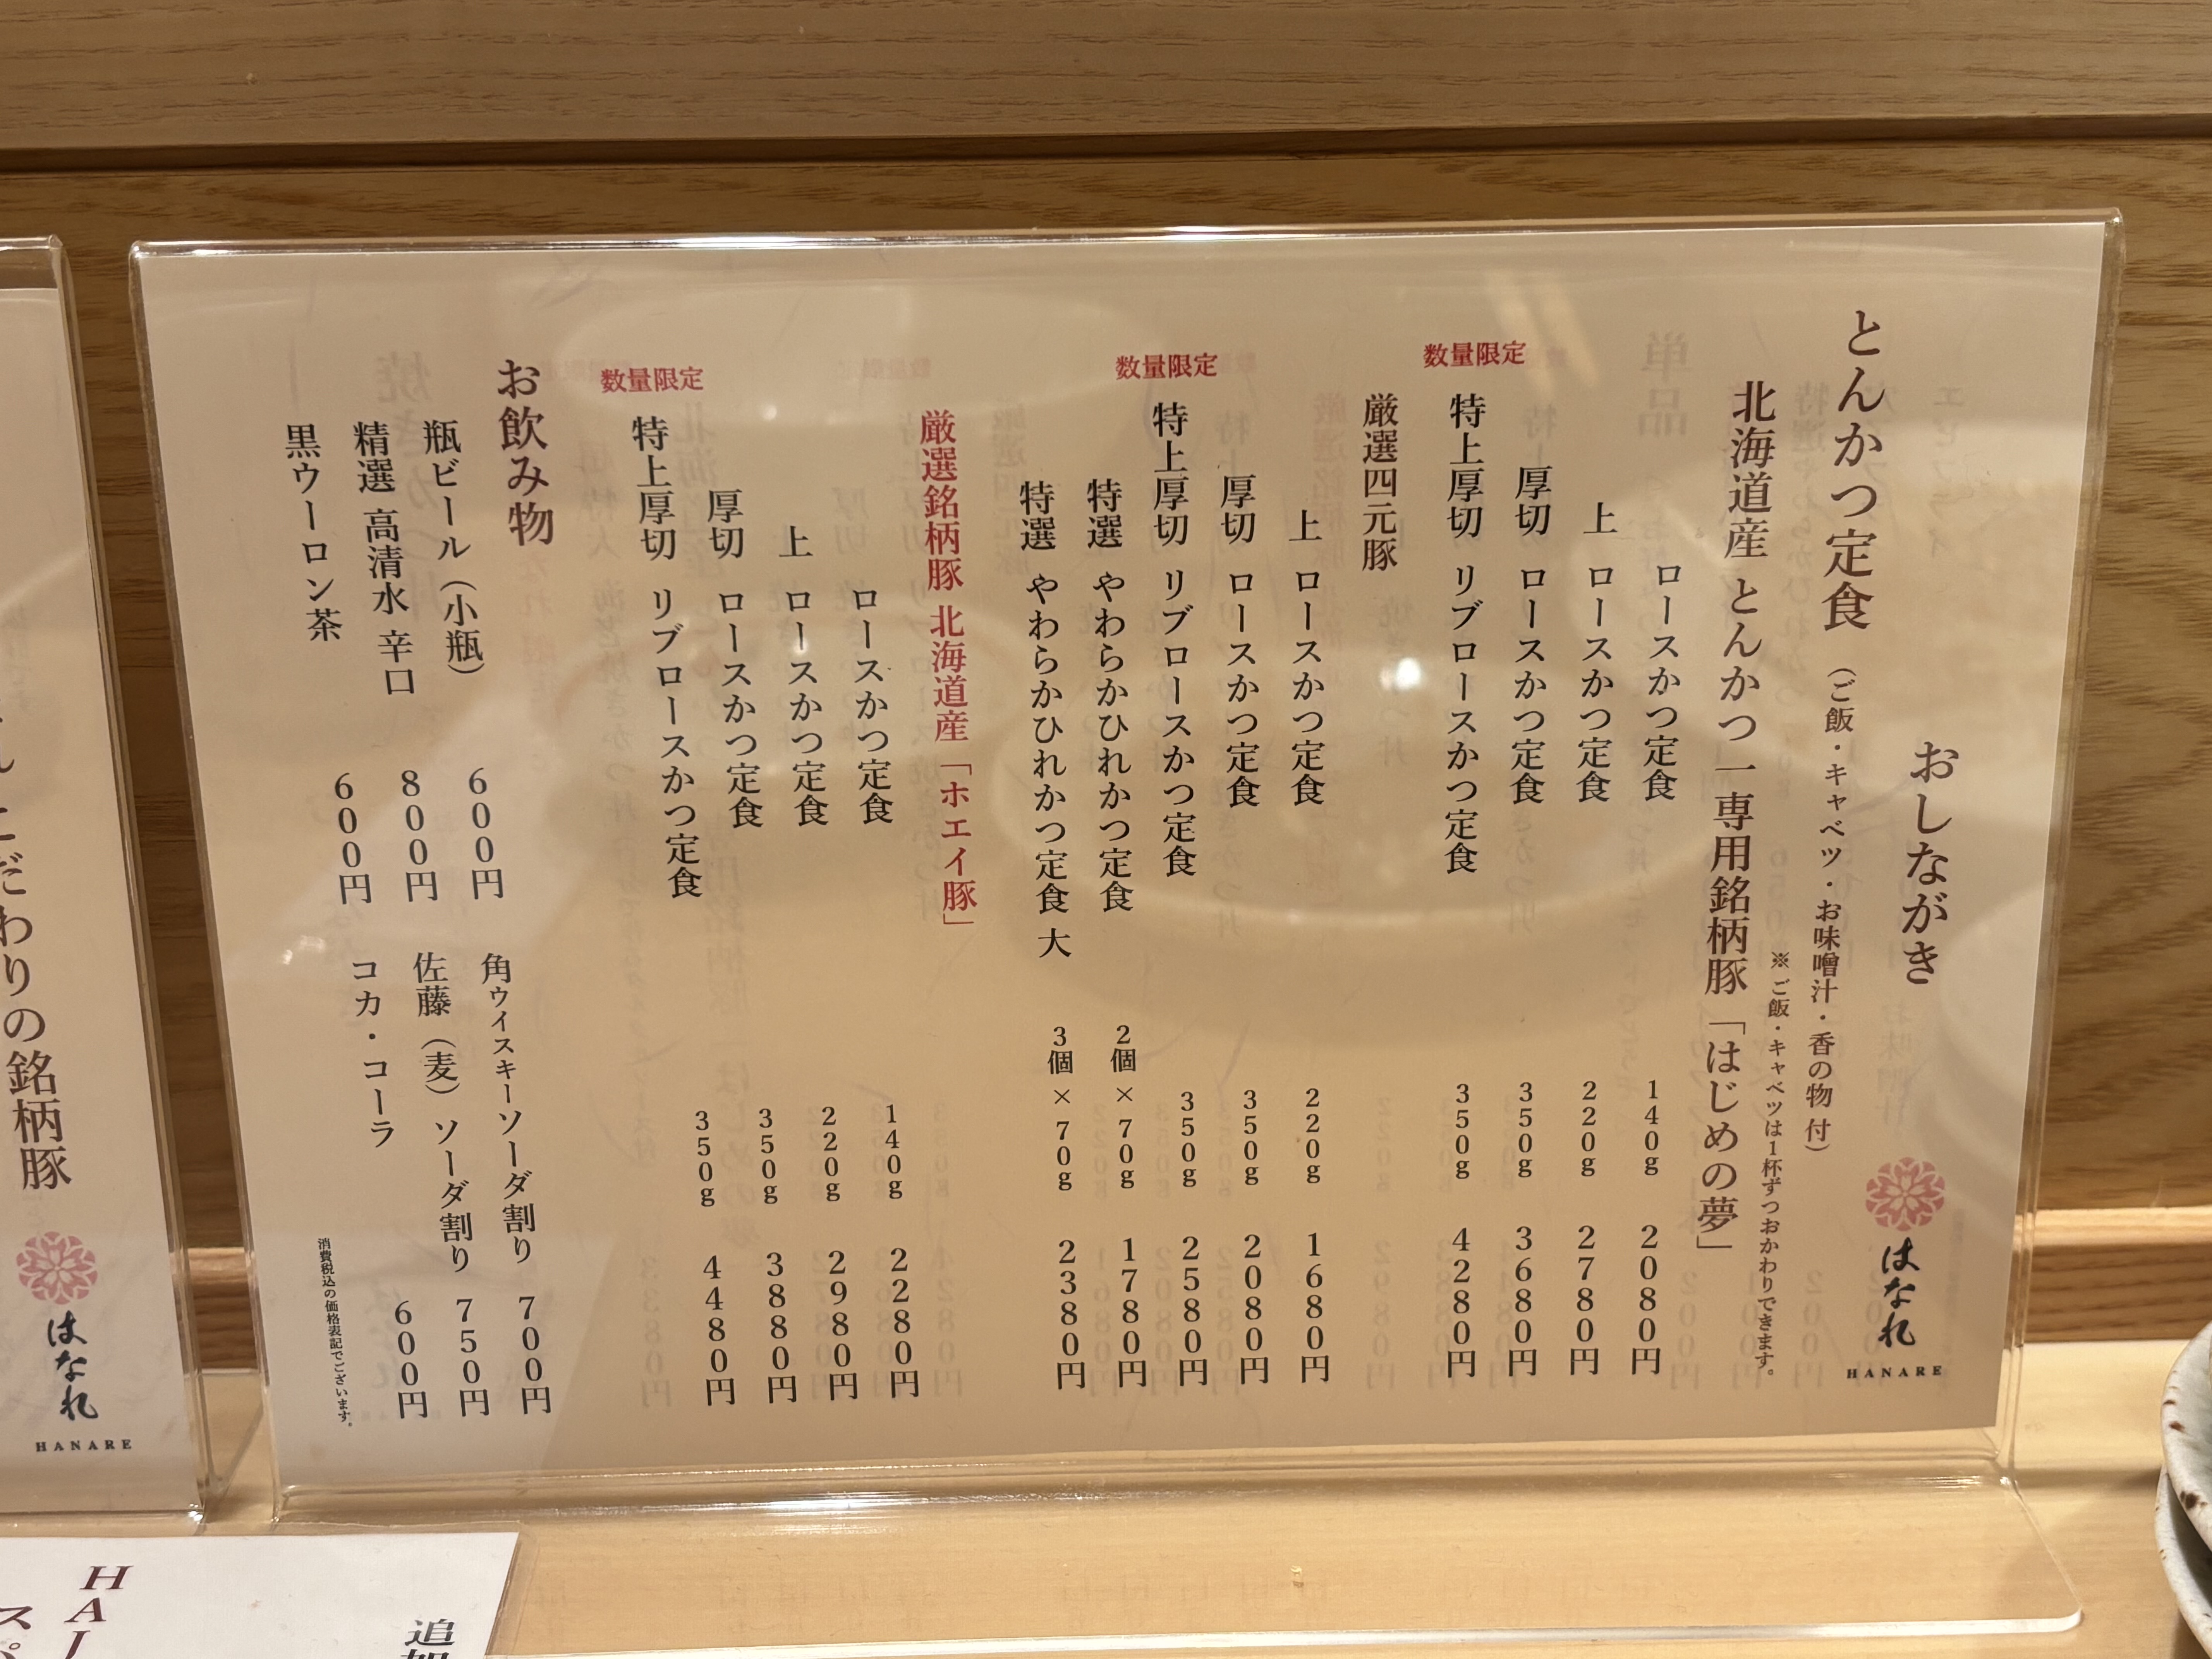 おしながき
はなれ
HANARE
とんかつ定食 (ご飯・キャベツ・お味噌汁・香の物 付)
※ご飯・キャベツは1杯ずつおかわりできます。
北海道産 とんかつ専用銘柄豚「はじめの夢」
ロースかつ定食 140g 2080円
上 ロースかつ定食 220g 2780円
厚切 ロースかつ定食 350g 3680円
数量限定 特上厚切 リブロースかつ定食 350g 4280円
厳選四元豚
上 ロースかつ定食 220g 1680円
厚切 ロースかつ定食 350g 2080円
数量限定 特上厚切 リブロースかつ定食 350g 2580円
特選 やわらかひれかつ定食 2個×70g 1780円
特選 やわらかひれかつ定食 大 3個×70g 2380円
厳選銘柄豚 北海道産「ホエイ豚」
ロースかつ定食 140g 2280円
上 ロースかつ定食 220g 2980円
厚切 ロースかつ定食 350g 3880円
数量限定 特上厚切 リブロースかつ定食 350g 4480円
お飲み物
瓶ビール(小瓶) 600円
角ウイスキーソーダ割り 700円
精選 高清水 辛口 800円
佐藤(麦)ソーダ割り 750円
黒ウーロン茶 600円
コカ・コーラ 600円
消費税込の価格表記でございます。
こだわりの銘柄豚
はなれ
HANARE